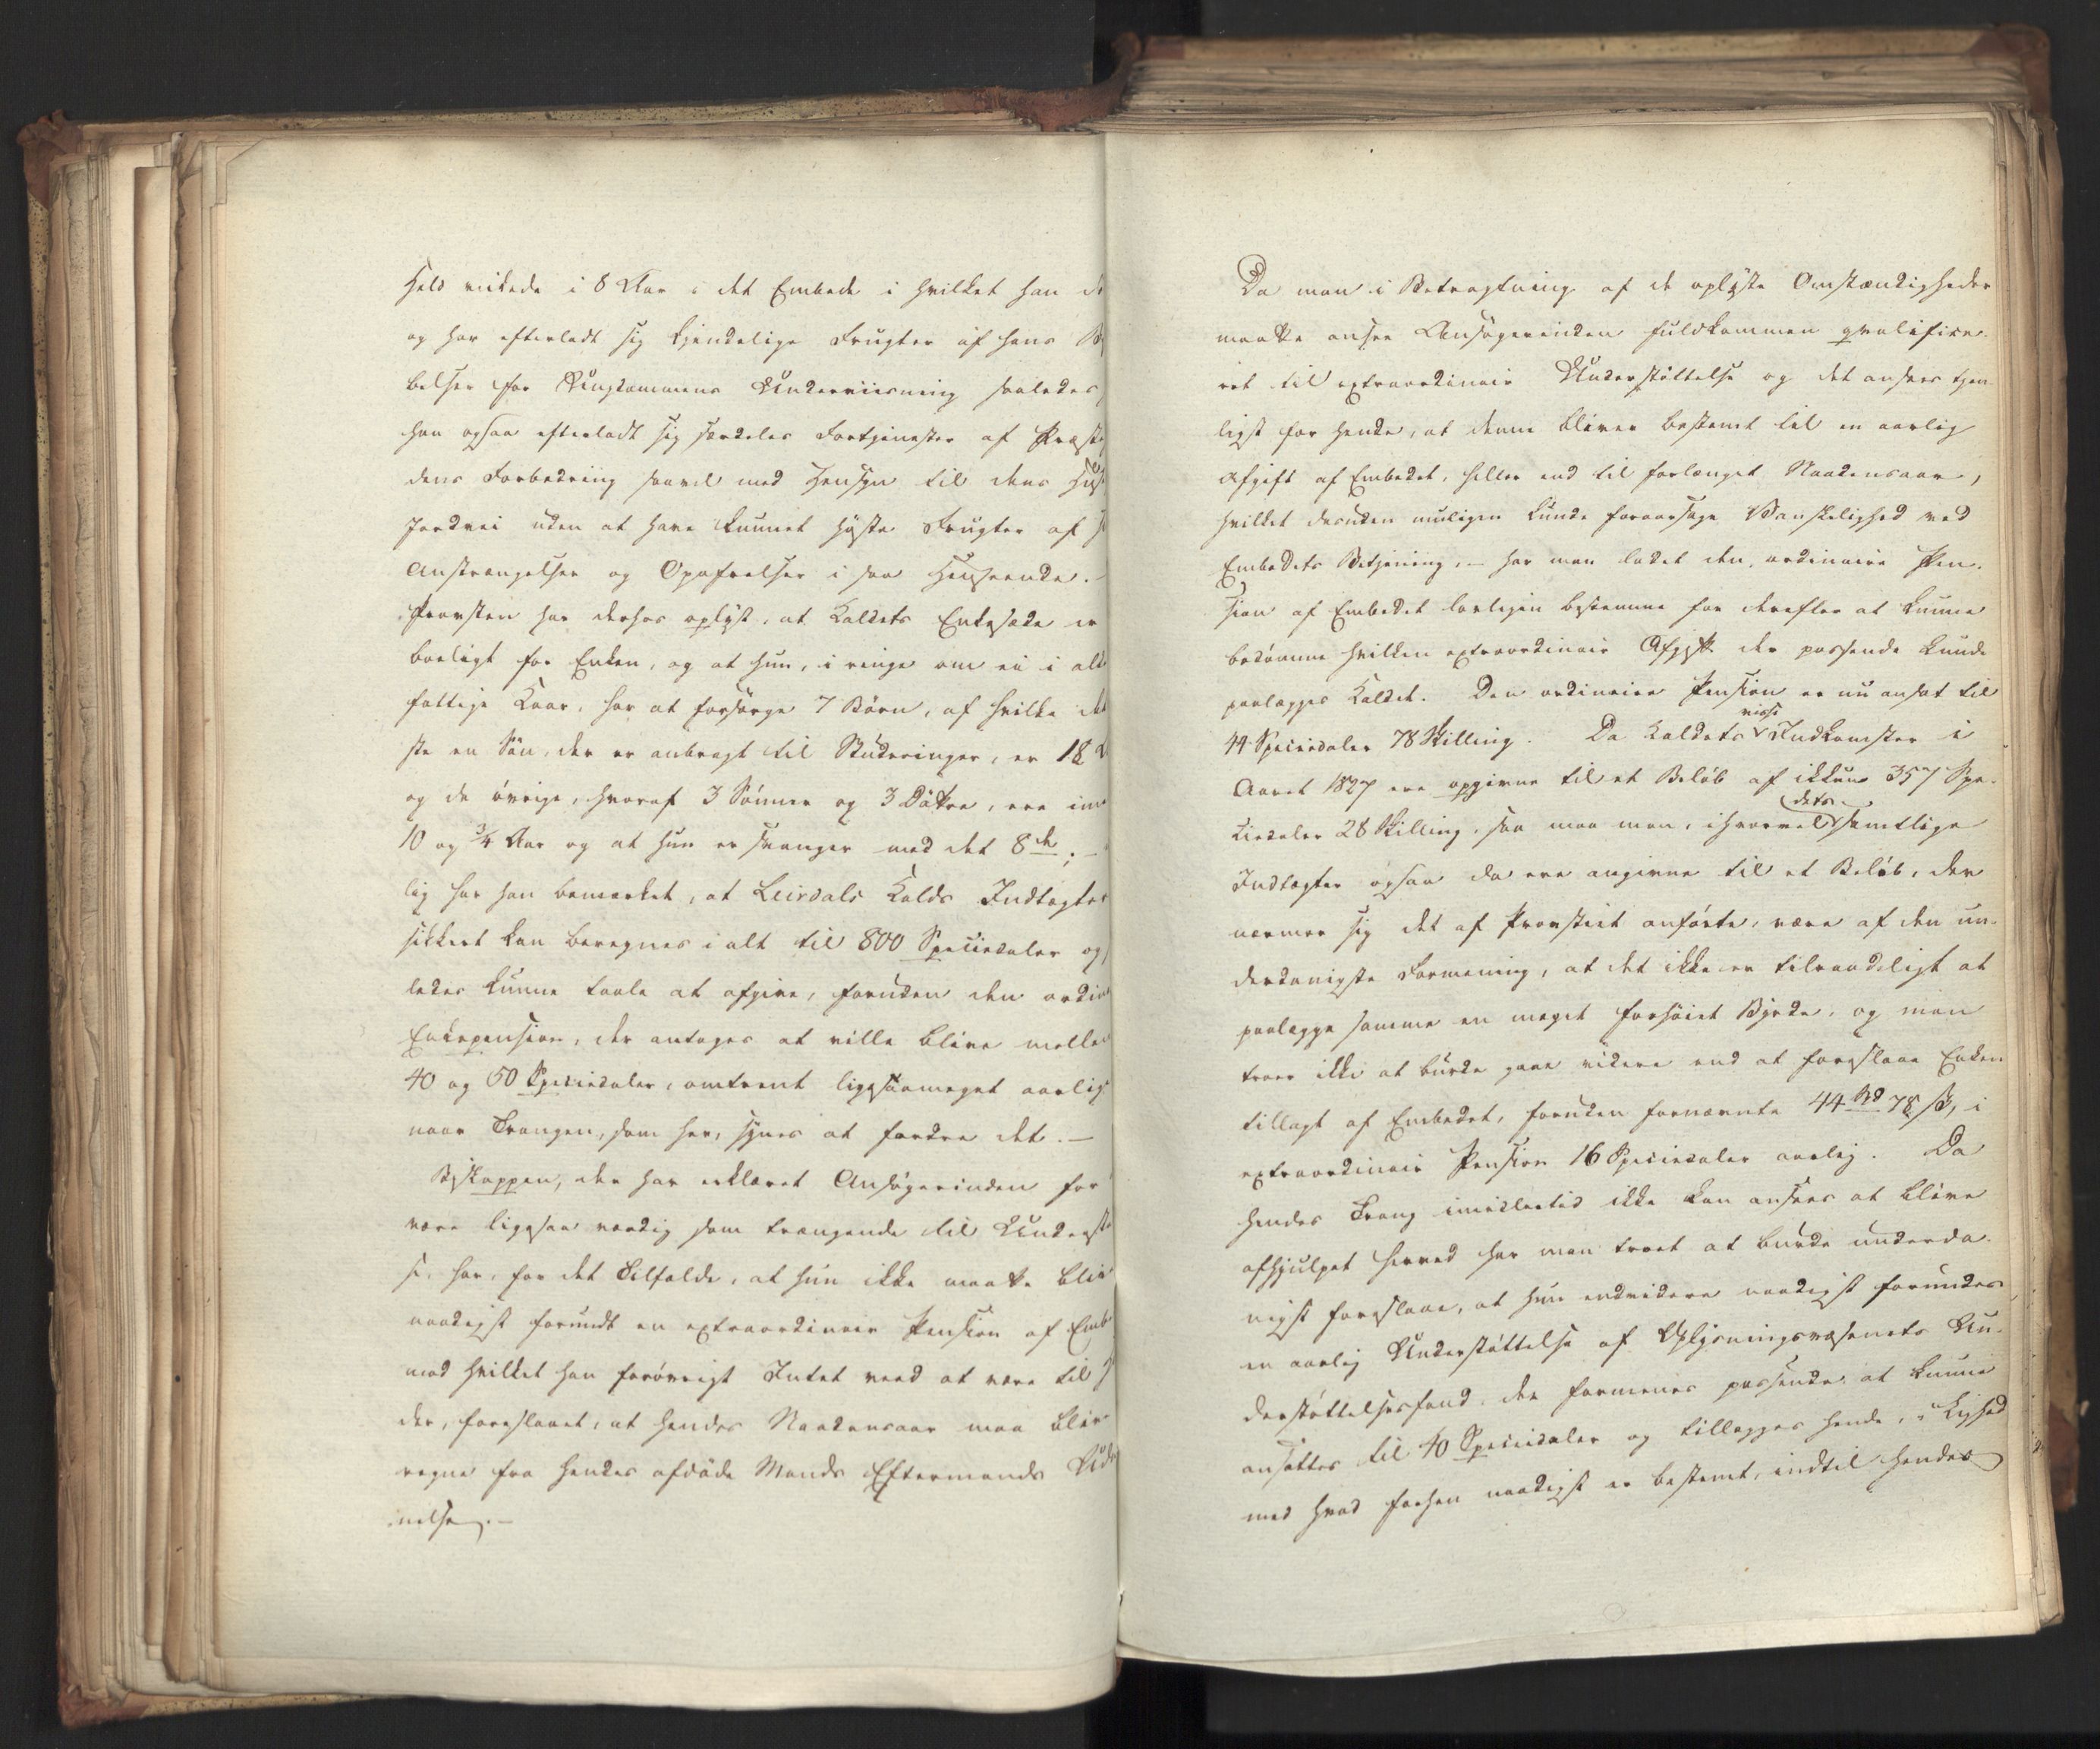 Held virkede i 8 Aar i det Embede i hvilket han d
og har efterladt sig kjendelige Frugter af hans B
belser for Ungdommens Underviisning saaledes
han ogsaa efterladt sig særdeles Fortjenester af Præste
dens Forbedring saavel med Hensyn til dens Huse
Jordvei uden at have kunnet høste Frugter af s
Anstrængelser og Opofrelser i saa Henseende.
Provsten har derhos oplyst, at Kaldets Enkesæde er
boeligt for Enken, og at hun, i ringe om ei i alt
fattige Kaar, har at forsørge 7 Børn, af hvilke det
ste en Søn, der er anbragt til Studeringer, er 18 A
og de øvrige, hvoraf 3 Sønner og 3 Døttre, ere im
10 og 3/4 Aar og at hun er svanger med det 8de; —
lig har han bemærket, at Leirdals Kalds Indtægter
sikkert kan beregnes i alt til 800 Speciedaler og
ledes kunne taale at afgive, foruden den ordin
Enkepension, der antages at ville blive melle
40 og 50 Speciedaler, omtrent ligesaameget aarlig
naar Trangen, som her, synes at fordre det. —
Biskoppen, der har erklæret Ansøgerinden for
være ligesaa værdig som trængende til Underst
se, har, for det Tilfælde, at hun ikke maatte bliv
naadigst forundt en extraordinair Pension af Emb
mod hvilket han forøvrigt Intet veed at være til H
der, foreslaaet, at hendes Naadensaar maa bliv
regne fra hendes afdøde Mands Eftermands Udn
nelse. —
Da man i Betragtning af de oplyste Omstændigheder
maatte ansee Ansøgerinden fuldkommen qvalifice-
ret til extraordinair Understøttelse og det ansees tjen-
ligst for hende, at denne bliver bestemt til en aarlig
Afgift af Embedet, heller end til forlænget Naadensaar,
hvilket desuden muligen kunde foraarsage Vanskelighed ved
Embedets Betjening, — har man ladet den ordinaire Pen-
sion af Embedet lovligen bestemme for derefter at kunne
bedømme hvilken extraordinair Afgift der passende kunde
paalægges Kaldet. Den ordinaire Pension er nu ansat til
44 Speciedaler 78 Skilling. Da Kaldets visse Indkomster i
Aaret 1827 ere opgivne til et Beløb af ikkun 357 Spe-
ciedaler 28 Skilling, saa maa man, ihvorvel dets samtlige
Indtægter ogsaa da ere angivne til et Beløb, der
nærmer sig det af Provsten anførte, være af den un-
derdanigste Formening, at det ikke er tilraadeligt at
paalægge samme en meget forhøiet Byrde, og man
troer ikke at burde gaae videre end at foreslaae Enken
tillagt af Embedet, foruden fornævnte 44 Spd 78 ß, i
extraordinair Pension 16 Speciedaler aarlig. Da
hendes Trang imidlertid ikke kan ansees at blive
afhjulpet herved har man troet at burde underda-
nigst foreslaae, at hun endvidere naadigst forundes
en aarlig Understøttelse af Oplysningsvæsenets Un-
derstøttelsesfond, der formenes passende at kunne
ansættes til 40 Speciedaler og tillægges hende, i Lighed
med hvad forhen naadigst er bestemt, indtil hendes